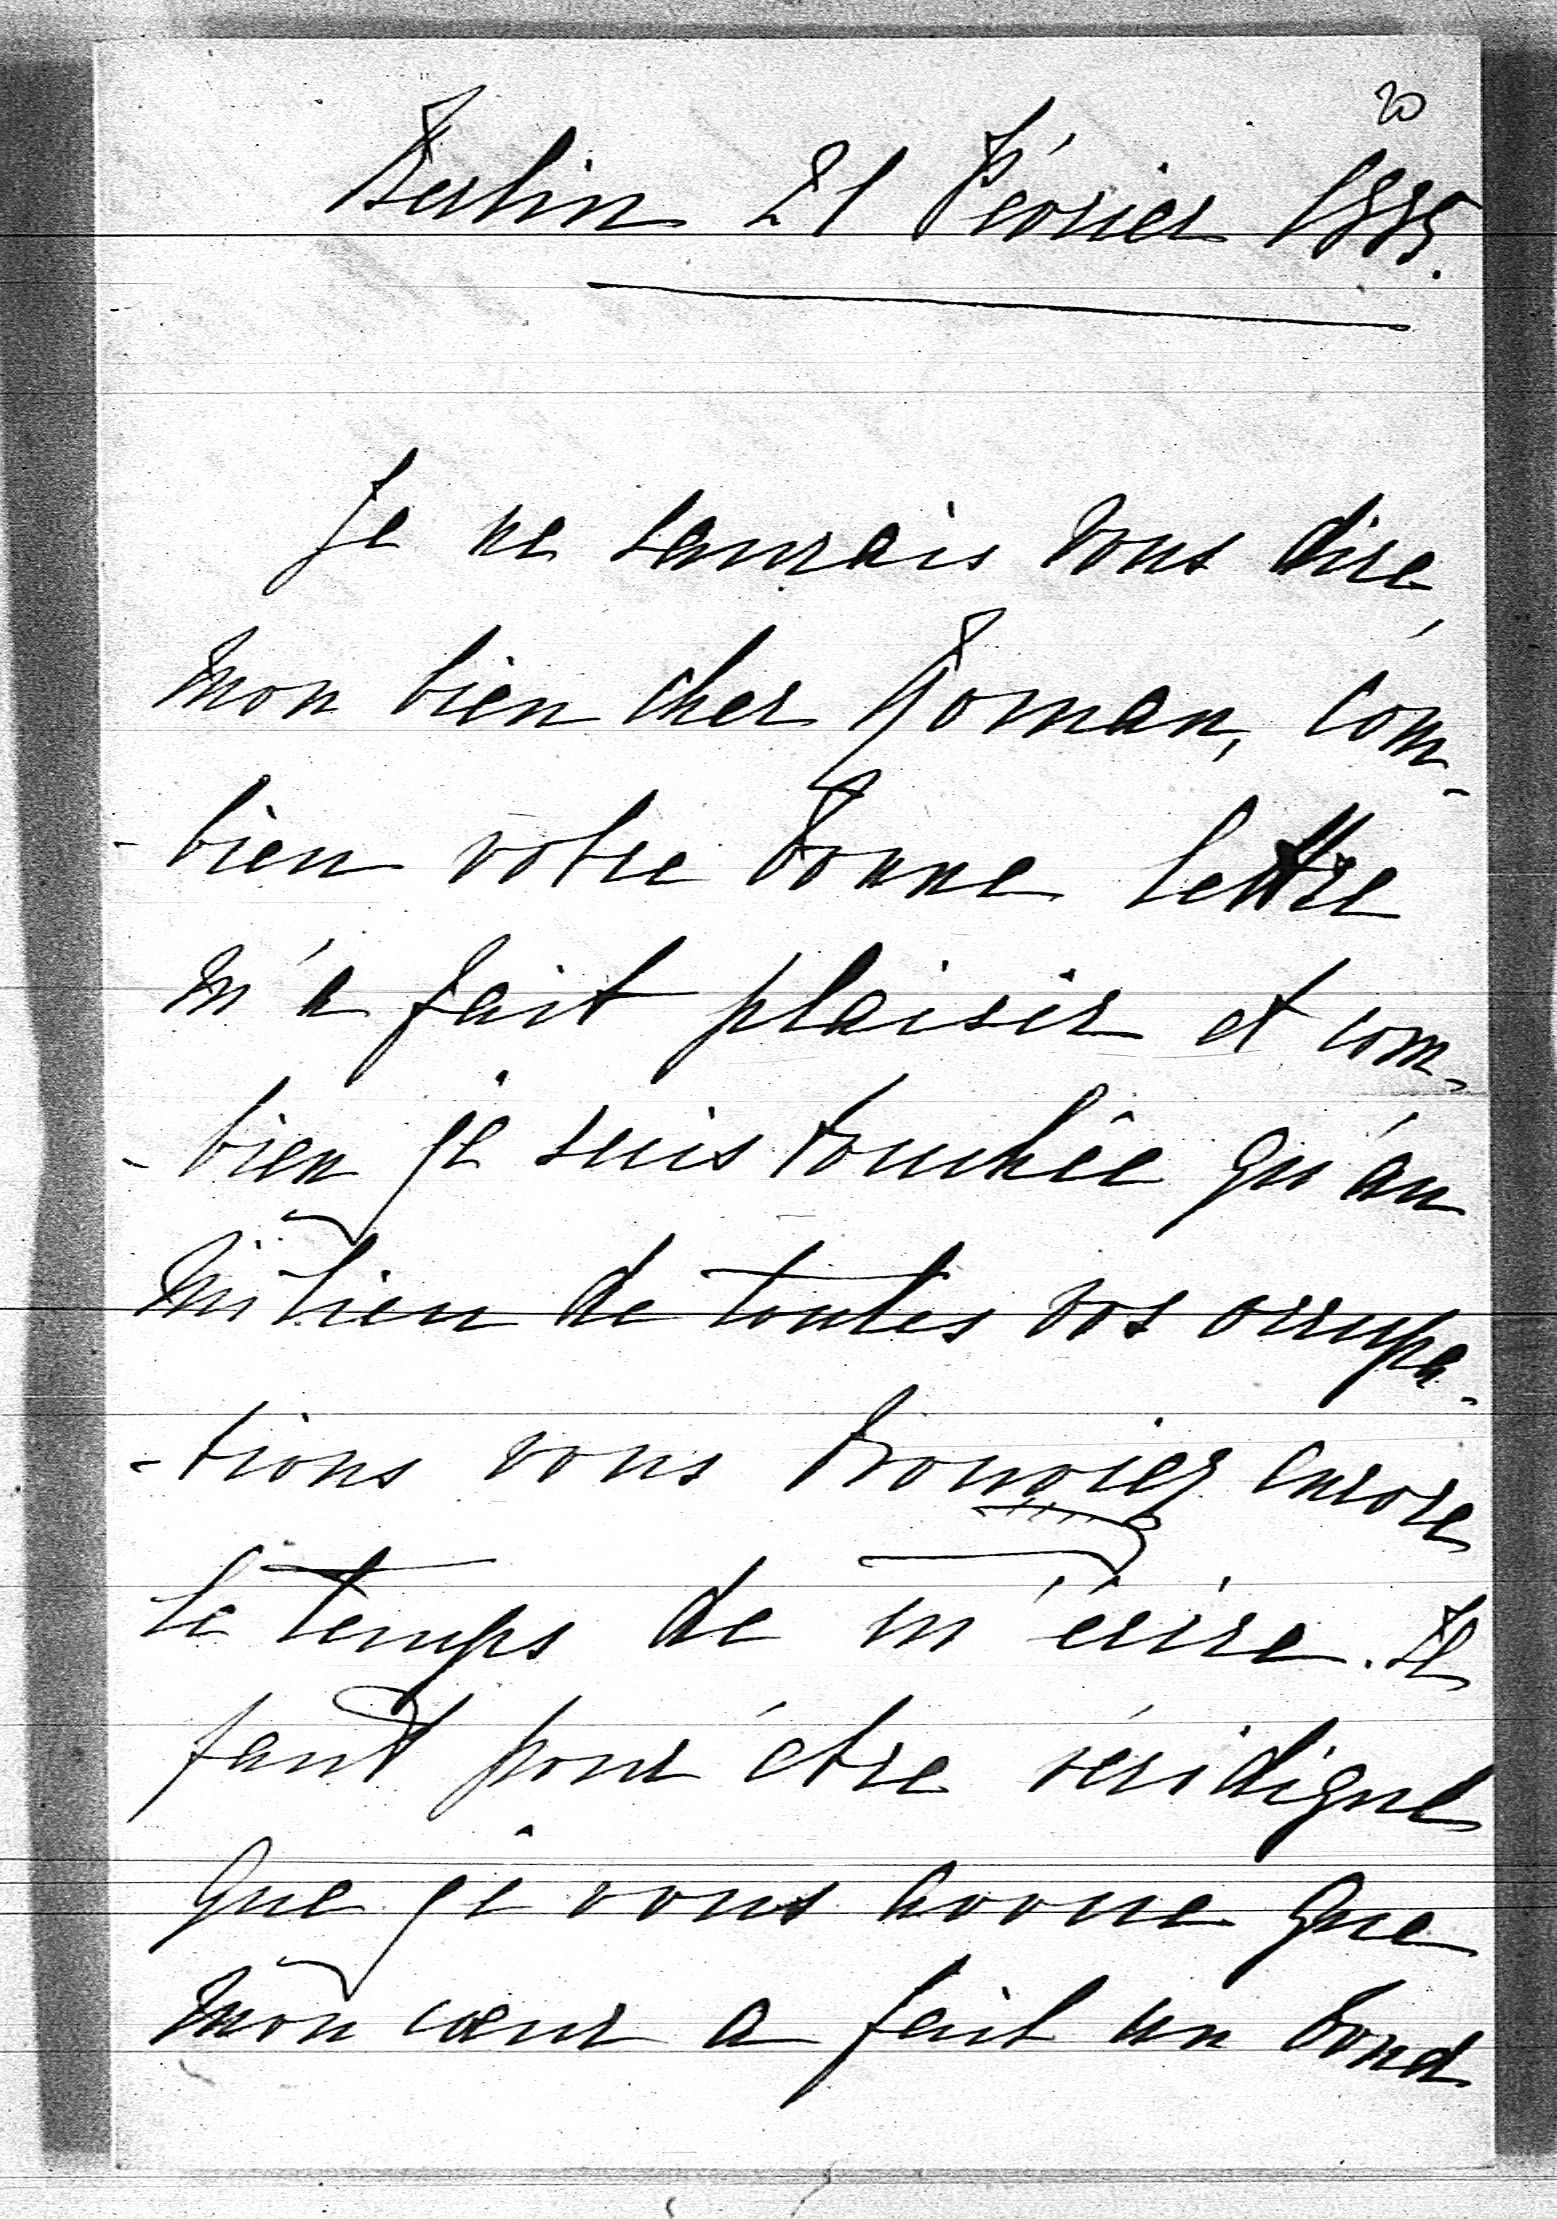 20
Berlin 21 Février 1885.
Je ne saurais vous dire,
mon bien cher Roman, com-
-bien votre bonne lettre
m'a fait plaisir et com-
-bien je suis touchée qu'au
milieu de toutes vos occupa-
-tions vous trouviez encore
le temps de m'écrire. Il
faut pour être véridique
que je vous avoue que
mon cœur a fait un bond